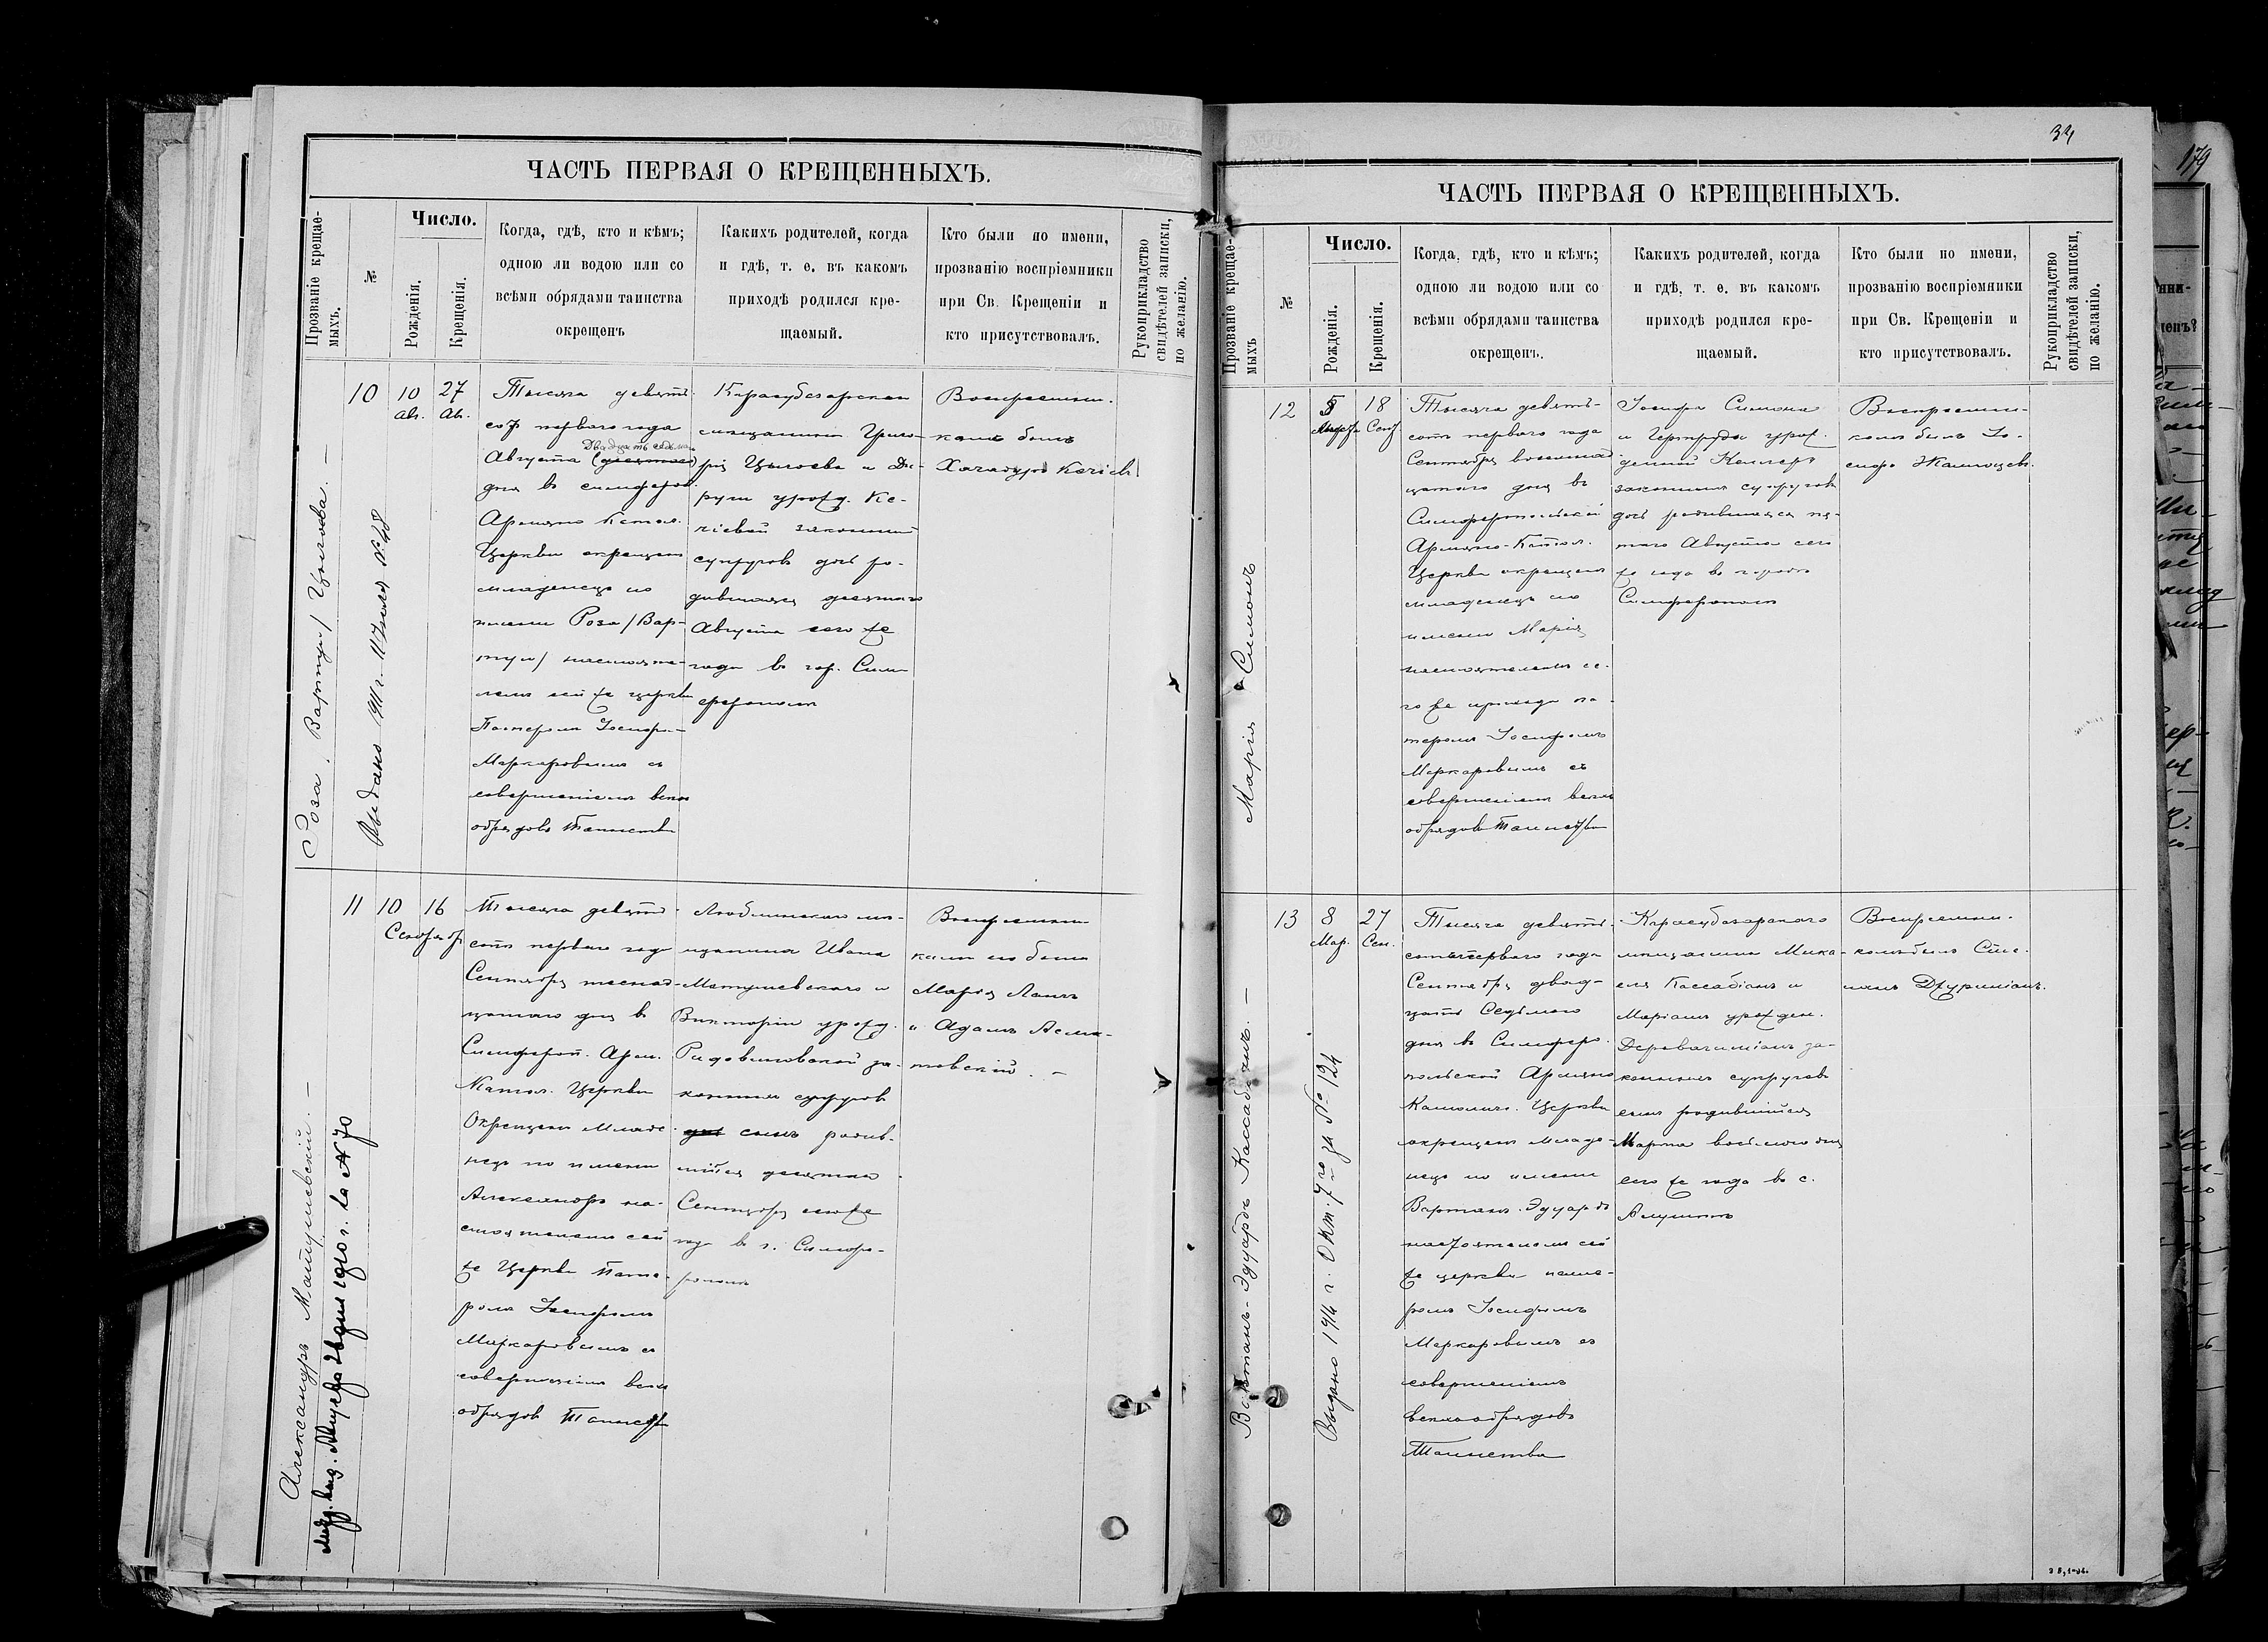 ЧАСТЬ ПЕРВАЯ О КРЕЩЕННЫХЪ.
Прозваніе крещае-
мыхъ.
№
Число.
Рожденія.
Крещенія.
Когда, гдѣ, кто и кѣмъ;
одною ли водою или со
всѣми обрядами таинства
окрещенъ
Какихъ родителей, когда
и гдѣ, т. е. въ какомъ
приходѣ родился кре-
щаемый.
Кто были по имени,
прозванію воспріемники
при Св. Крещеніи и
кто присутствовалъ.
Рукоприкладство
свидѣтелей записки,
по желанію.
Роза
Выдано 1911 г. 11 Іюля № 48
10
10
Ав.
27
Ав.
Тысяча девять-
сот перваго года
Двадцать седьмаго
Августа (десятаго)
дня въ симфероп.
Армяно Катол.
Церкви окрещенъ
младенецъ по
имени Роза /Вар-
туи/ настояте-
лемъ сей же церкви
Патеромъ Іосифомъ
Маркаровымъ съ
совершеніемъ всѣхъ
обрядовъ Таинства
Карасубазарскаго
мѣщанина Григо-
рія
урожд. Ке-
чіевой законныхъ
супруговъ дочь ро-
дившаяся десятаго
Августа сего же
года въ гор. Сим-
ферополѣ
Воспріемни-
комъ былъ
Хачадуръ Кечіевъ
Александръ Матушевскій. —
1910 г. за № 70
11
10
16
Сентября
Тысяча девять-
сотъ перваго года
Сентября шестнад-
цатаго дня въ
Симфероп. Арм.
Катол. Церкви
Окрещенъ Младе-
нецъ по имени
Александръ на-
стоятелемъ сей
же Церкви Пате-
ромъ Іосифомъ
Маркаровымъ съ
совершеніемъ всѣхъ
обрядовъ Таинства
Люблинскаго мѣ-
щанина Ивана
Матушевскаго и
Викторіи урожд.
за-
конныхъ супруговъ
сынъ родив-
шійся десятаго
Сентября сего же
года въ г. Симфе-
рополѣ
Воспріемни-
ками его были
Марія
и Адамъ
ЧАСТЬ ПЕРВАЯ О КРЕЩЕННЫХЪ.
34
179
Прозваніе крещае-
мыхъ
№
Число.
Рожденія.
Крещенія.
Когда, гдѣ, кто и кѣмъ;
одною ли водою или со
всѣми обрядами таинства
окрещенъ.
Какихъ родителей, когда
и гдѣ, т. е. въ какомъ
приходѣ родился кре-
щаемый.
Кто были по имени,
прозванію воспріемники
при Св. Крещеніи и
кто присутствовалъ.
Рукоприкладство
свидѣтелей записки,
по желанію.
Марія Симонъ
12
5
18
Сент.
Тысяча девять-
сотъ перваго года
Сентября восемнад-
цатаго дня въ
Симферопольской
Армяно-Катол.
Церкви окрещенъ
младенецъ по
имени Марія
настоятелемъ се-
го же прихода па-
теромъ Іосифомъ
Маркаровымъ съ
совершеніемъ всѣхъ
обрядовъ Таинства
Іосифа Симона
и Гертруды урож-
денной Келлеръ
законныхъ супруговъ
дочь родившаяся пя-
таго Августа сего
же года въ городѣ
Симферополѣ
Воспріемни-
комъ былъ Іо-
сифъ
Вартанъ-Эдуардъ Кассабіанъ. —
Выдано 1914 г. Окт. 7го за № 124
13
8
Мар.
27
Сен.
Тысяча девять-
сотъ перваго года
Сентября двад-
цать Седьмого
дня въ Симферо-
польской Армяно
Католич. Церкви
окрещенъ младе-
нецъ по имени
Вартанъ-Эдуардъ
настоятелемъ сей
же церкви пате-
ромъ Іосифомъ
Маркаровымъ съ
совершеніемъ
всѣхъ обрядовъ
Таинства
Карасубазарскаго
мѣщанина Мика-
еля Кассабіанъ и
Маріамъ урожден.
за-
конныхъ супруговъ
сынъ родившійся
Марта восьмого дня
сего же года въ с.
Алуштѣ
Воспріемни-
комъ былъ Сте-
панъ